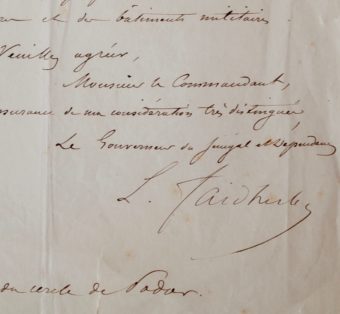 et des bâtiments militaires
Veuillez agréer,
Monsieur le Commandant,
assurance de ma considération très distinguée
Le Gouverneur du Sénégal et Dépendances
L. Faidherbe
du cercle de Podor.